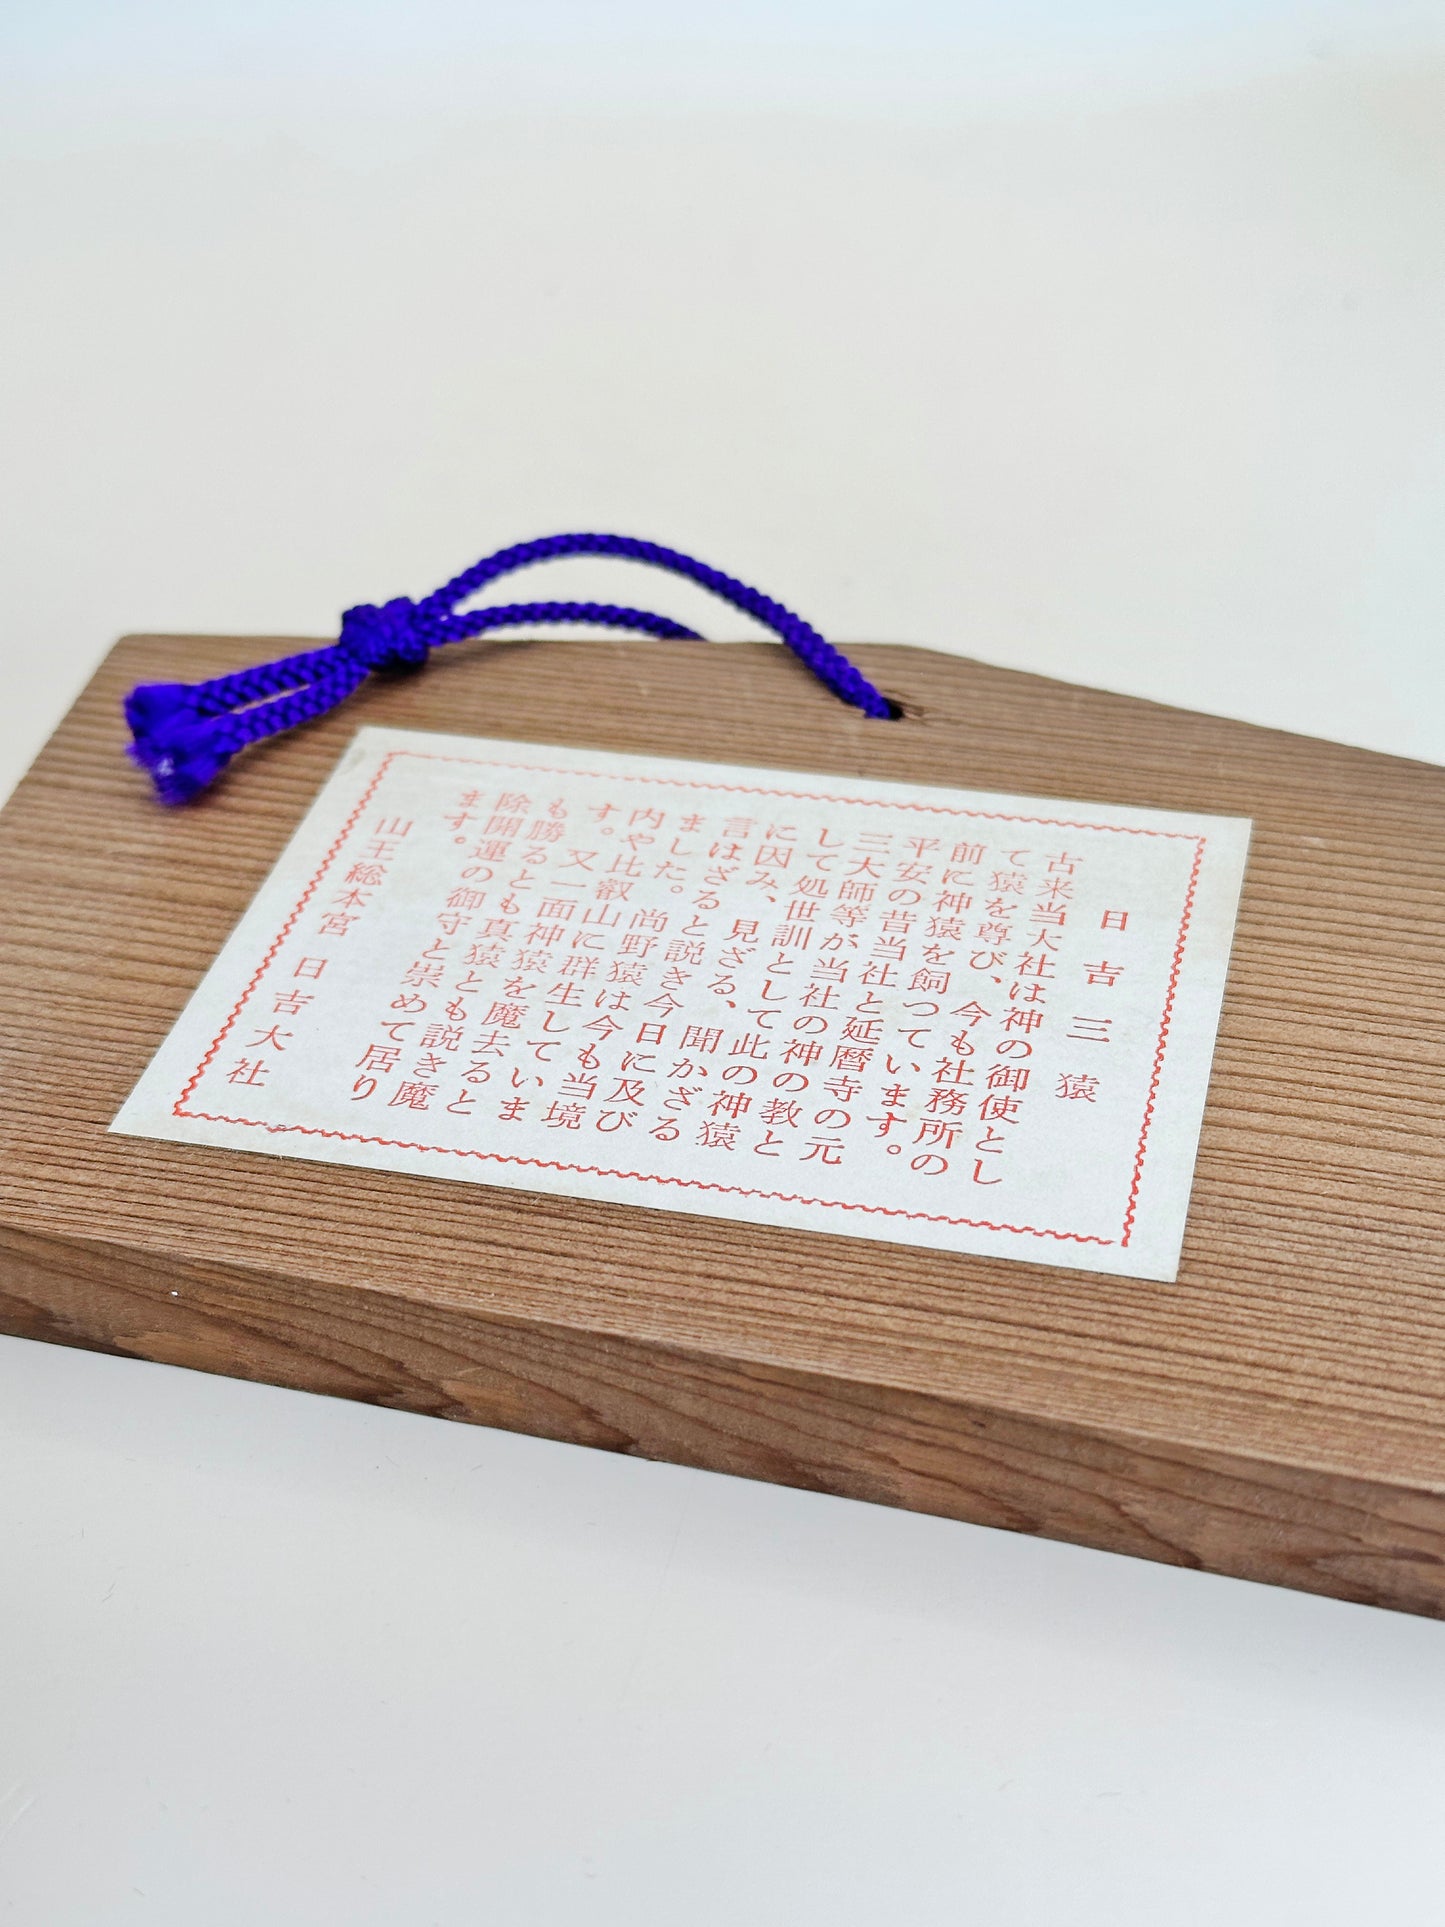 日吉三猿
古来当大社は神の御使とし
て猿を尊び、今も社務所の
前に神猿を飼つています。
平安の昔当社と延暦寺の元
三大師等が当社の神の教と
して処世訓として此の神猿
に因み、見ざる、聞かざる
言はざると説き今日に及び
ました。尚野猿は今も当境
内や比叡山に群生していま
す。又一面神猿を魔去ると
も勝るとも真猿とも説き魔
除開運の御守と崇めて居り
ます。
山王総本宮 日吉大社